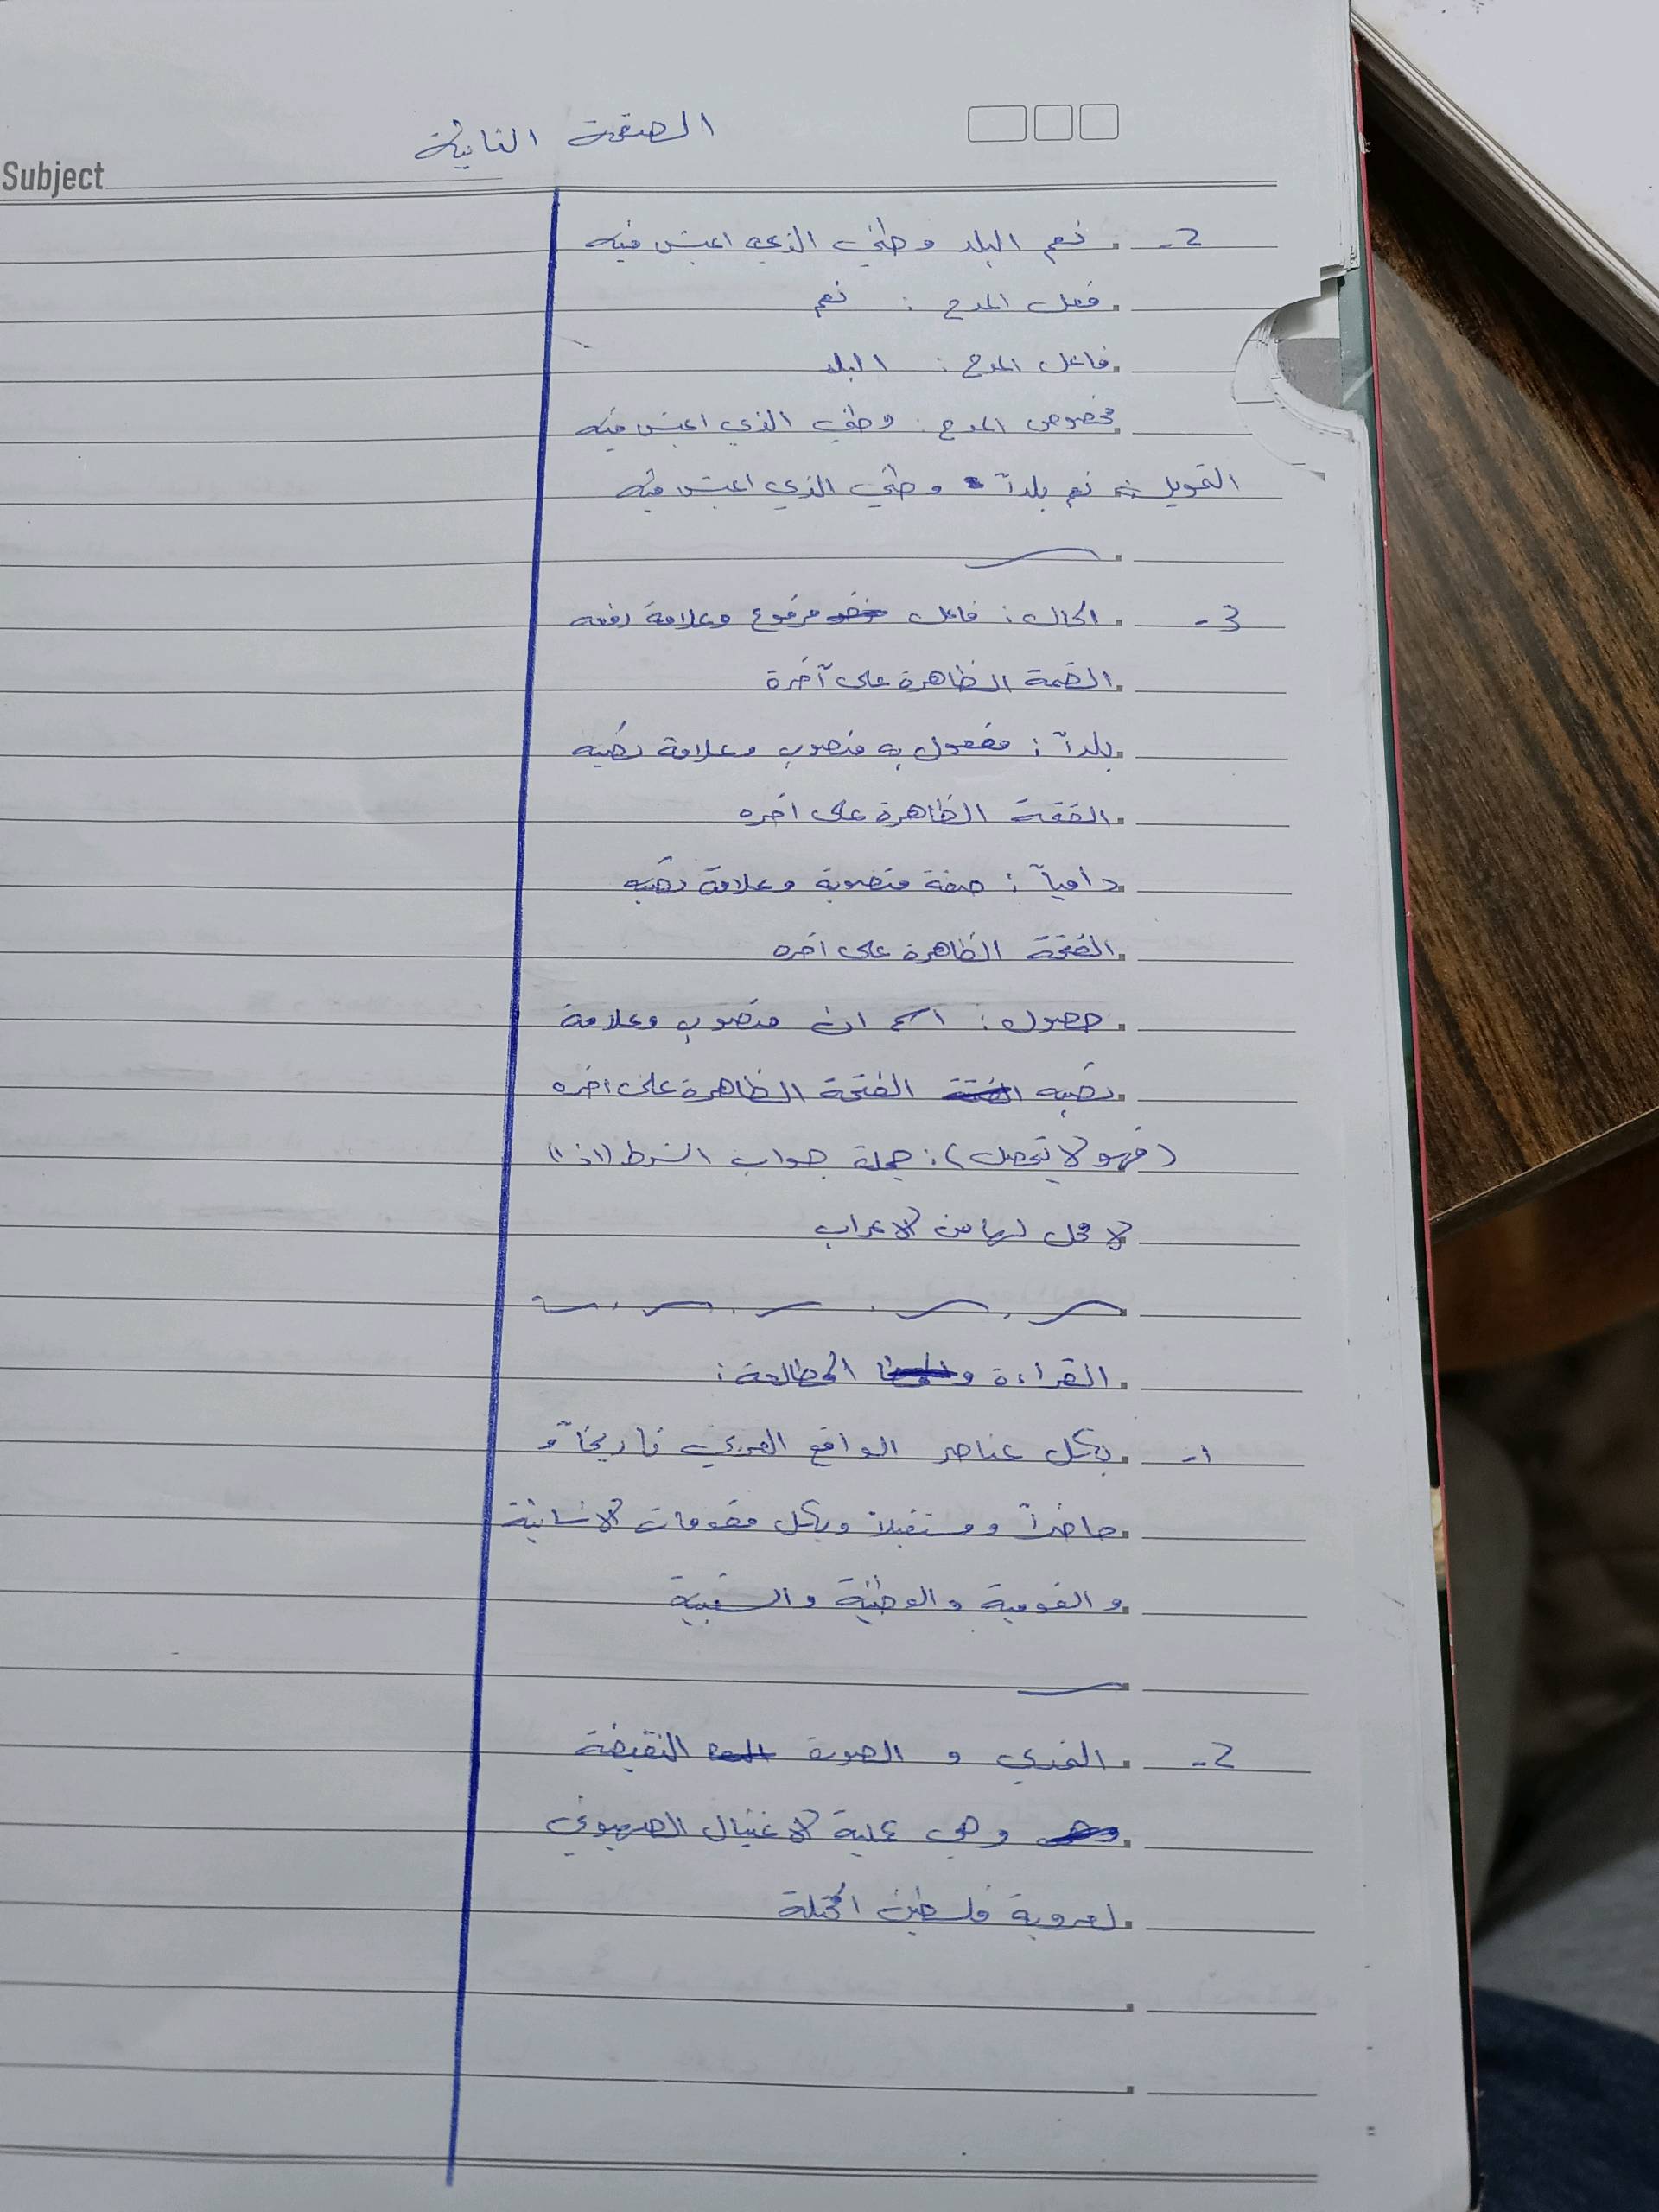 الصفحة الثانية
Subject
2- نعم البلد وطني الذي اعيش فيه
فعل المدح : نعم
فاعل المدح : البلد
مخصوص المدح : وطني الذي اعيش فيه
التحويل :- نعم بلداً وطني الذي اعيش فيه
3- الحال : فاعل مرفوع وعلامة رفعه
الضمة الظاهرة على آخرة
بلداً : مفعول به منصوب وعلامة نصبه
الفتحة الظاهرة على اخره
دامياً : صفة منصوبة وعلامة نصبه
الفتحة الظاهرة على اخره
حصول : اسم ان منصوب وعلامة
نصبه الفتحة الظاهرة على اخره
(فهو لا يحصل) : جملة جواب الشرط (اذا)
لا محل لها من الاعراب
القراءة و المطالعة :
1- بكل عناصر الواقع العربي تاريخاً و
حاضراً ومستقبلاً وبكل مقومات الانسانية
و القومية والوطنية والشعبية
2- الفدي و الصورة النقيضة
وهي عملية الاغتيال الصهيوني
لعروبة فلسطين المحتلة